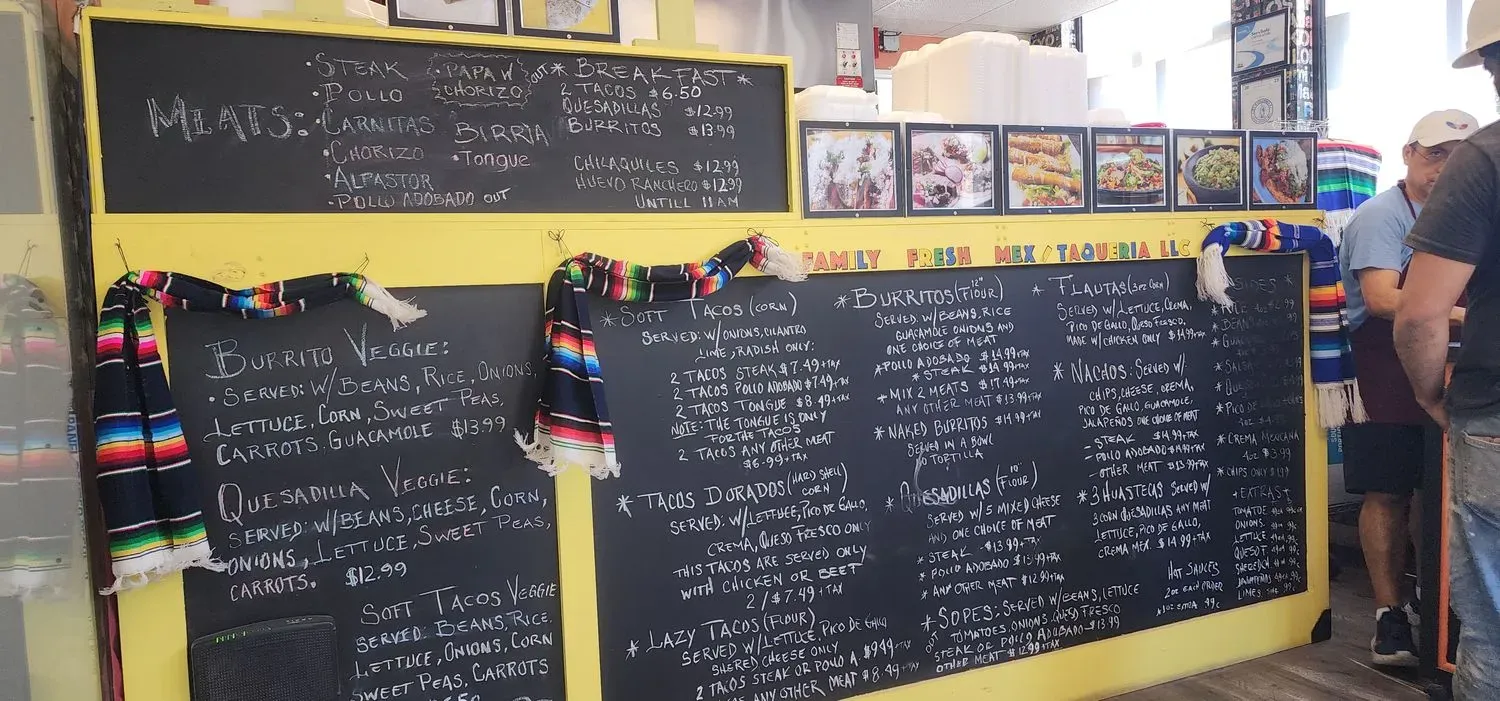 MEATS:
• STEAK
• POLLO
• CARNITAS
• CHORIZO
• ALPASTOR
• POLLO ADOBADO OUT
• PAPA W
CHORIZO
OUT
BIRRIA
• Tongue
* BREAKFAST *
2 TACOS $6.50
QUESADILLAS $12.99
BURRITOS $13.99
CHILAQUILES $12.99
HUEVO RANCHERO $12.99
UNTILL 11 AM
FAMILY FRESH MEX / TAQUERIA LLC
BURRITO VEGGIE:
• SERVED: W/BEANS, RICE, ONIONS,
LETTUCE, CORN, SWEET PEAS,
CARROTS, GUACAMOLE $13.99
QUESADILLA VEGGIE:
SERVED: W/BEANS, CHEESE, CORN,
ONIONS, LETTUCE, SWEET PEAS,
CARROTS. $12.99
SOFT TACOS VEGGIE
SERVED: BEANS, RICE,
LETTUCE, ONIONS, CORN
SWEET PEAS, CARROTS
* SOFT TACOS (CORN)
SERVED: W/ONIONS, CILANTRO
LIME, RADISH ONLY:
2 TACOS STEAK $7.49+TAX
2 TACOS POLLO ADOBADO $7.49+TAX
2 TACOS TONGUE $8.49+TAX
NOTE: THE TONGUE IS ONLY
FOR THE TACOS
2 TACOS ANY OTHER MEAT
$6.99+TAX
* TACOS DORADOS (HARD SHELL
CORN)
SERVED: W/LETTUCE, PICO DE GALLO,
CREMA, QUESO FRESCO ONLY
THIS TACOS ARE SERVED ONLY
WITH CHICKEN OR BEET
2/$7.49+TAX
* LAZY TACOS (FLOUR)
SERVED W/LETTUCE, PICO DE GALLO
SHERED CHEESE ONLY
2 TACOS STEAK OR POLLO A. $9.49+TAX
ANY OTHER MEAT $8.49+TAX
* BURRITOS (12" FLOUR)
SERVED W/BEANS, RICE
GUACAMOLE ONIONS AND
ONE CHOICE OF MEAT
* POLLO ADOBADO $14.99+TAX
* STEAK $14.99+TAX
* MIX 2 MEATS $17.49+TAX
ANY OTHER MEAT $13.99+TAX
* NAKED BURRITOS $14.99+TAX
SERVED IN A BOWL
NO TORTILLA
* QUESADILLAS (10" FLOUR)
SERVED W/5 MIXED CHEESE
AND ONE CHOICE OF MEAT
* STEAK - $13.99+TAX
* POLLO ADOBADO $13.99+TAX
* ANY OTHER MEAT $12.99+TAX
* SOPES: SERVED W/BEANS, LETTUCE
OUT TOMATOES, ONIONS, QUESO FRESCO
STEAK OR POLLO ADOBADO $13.99
OTHER MEAT $12.99+TAX
* FLAUTAS (3 PZ CORN)
SERVED W/LETTUCE, CREMA,
PICO DE GALLO, QUESO FRESCO,
MADE W/CHICKEN ONLY $14.99+TAX
* NACHOS: SERVED W/
CHIPS, CHEESE, CREMA,
PICO DE GALLO, GUACAMOLE,
JALAPEÑOS ONE CHOICE OF MEAT
- STEAK $14.99+TAX
- POLLO ADOBADO $14.99+TAX
- OTHER MEAT $13.99+TAX
* 3 HUASTECAS SERVED W/
3 CORN QUESADILLAS ANY MEAT
LETTUCE, PICO DE GALLO,
CREMA MEX. $14.99+TAX
HOT SAUCES
2oz EACH ORDER
SIDES *
* RICE
* BEANS
* SALSA
* PICO DE
* CREMA MEXICANA
4oz $3.99
* CHIPS ONLY
* EXTRAS *
TOMATOE
ONIONS
LETTUCE
QUESO F.
JALAPEÑOS
LIMES